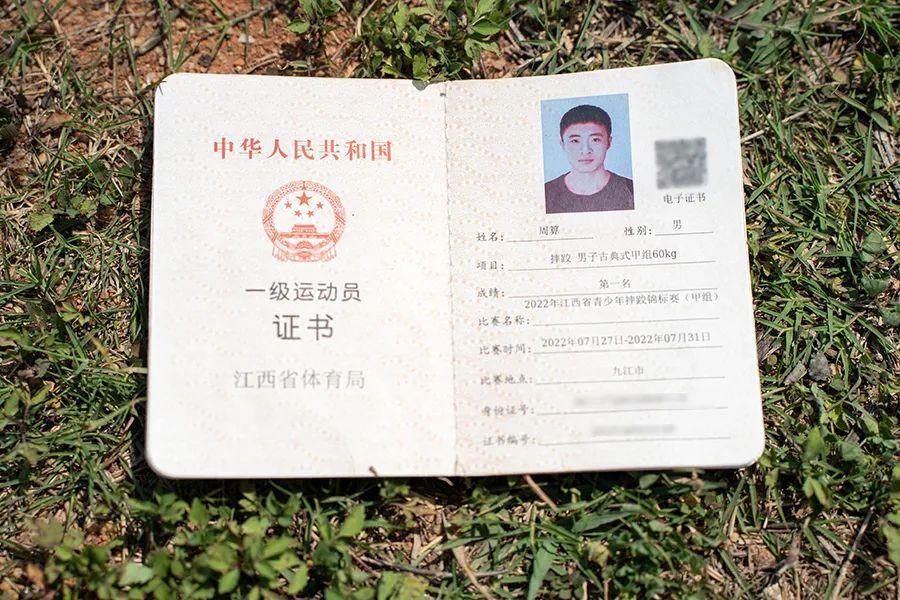 中华人民共和国
一级运动员
证书
江西省体育局
电子证书
姓名: 周算 性别: 男
项目: 摔跤 男子古典式甲组60kg
成绩: 第一名
2022年江西省青少年摔跤锦标赛（甲组）
比赛名称:
比赛时间: 2022年07月27日-2022年07月31日
比赛地点: 九江市
身份证号:
证书编号: